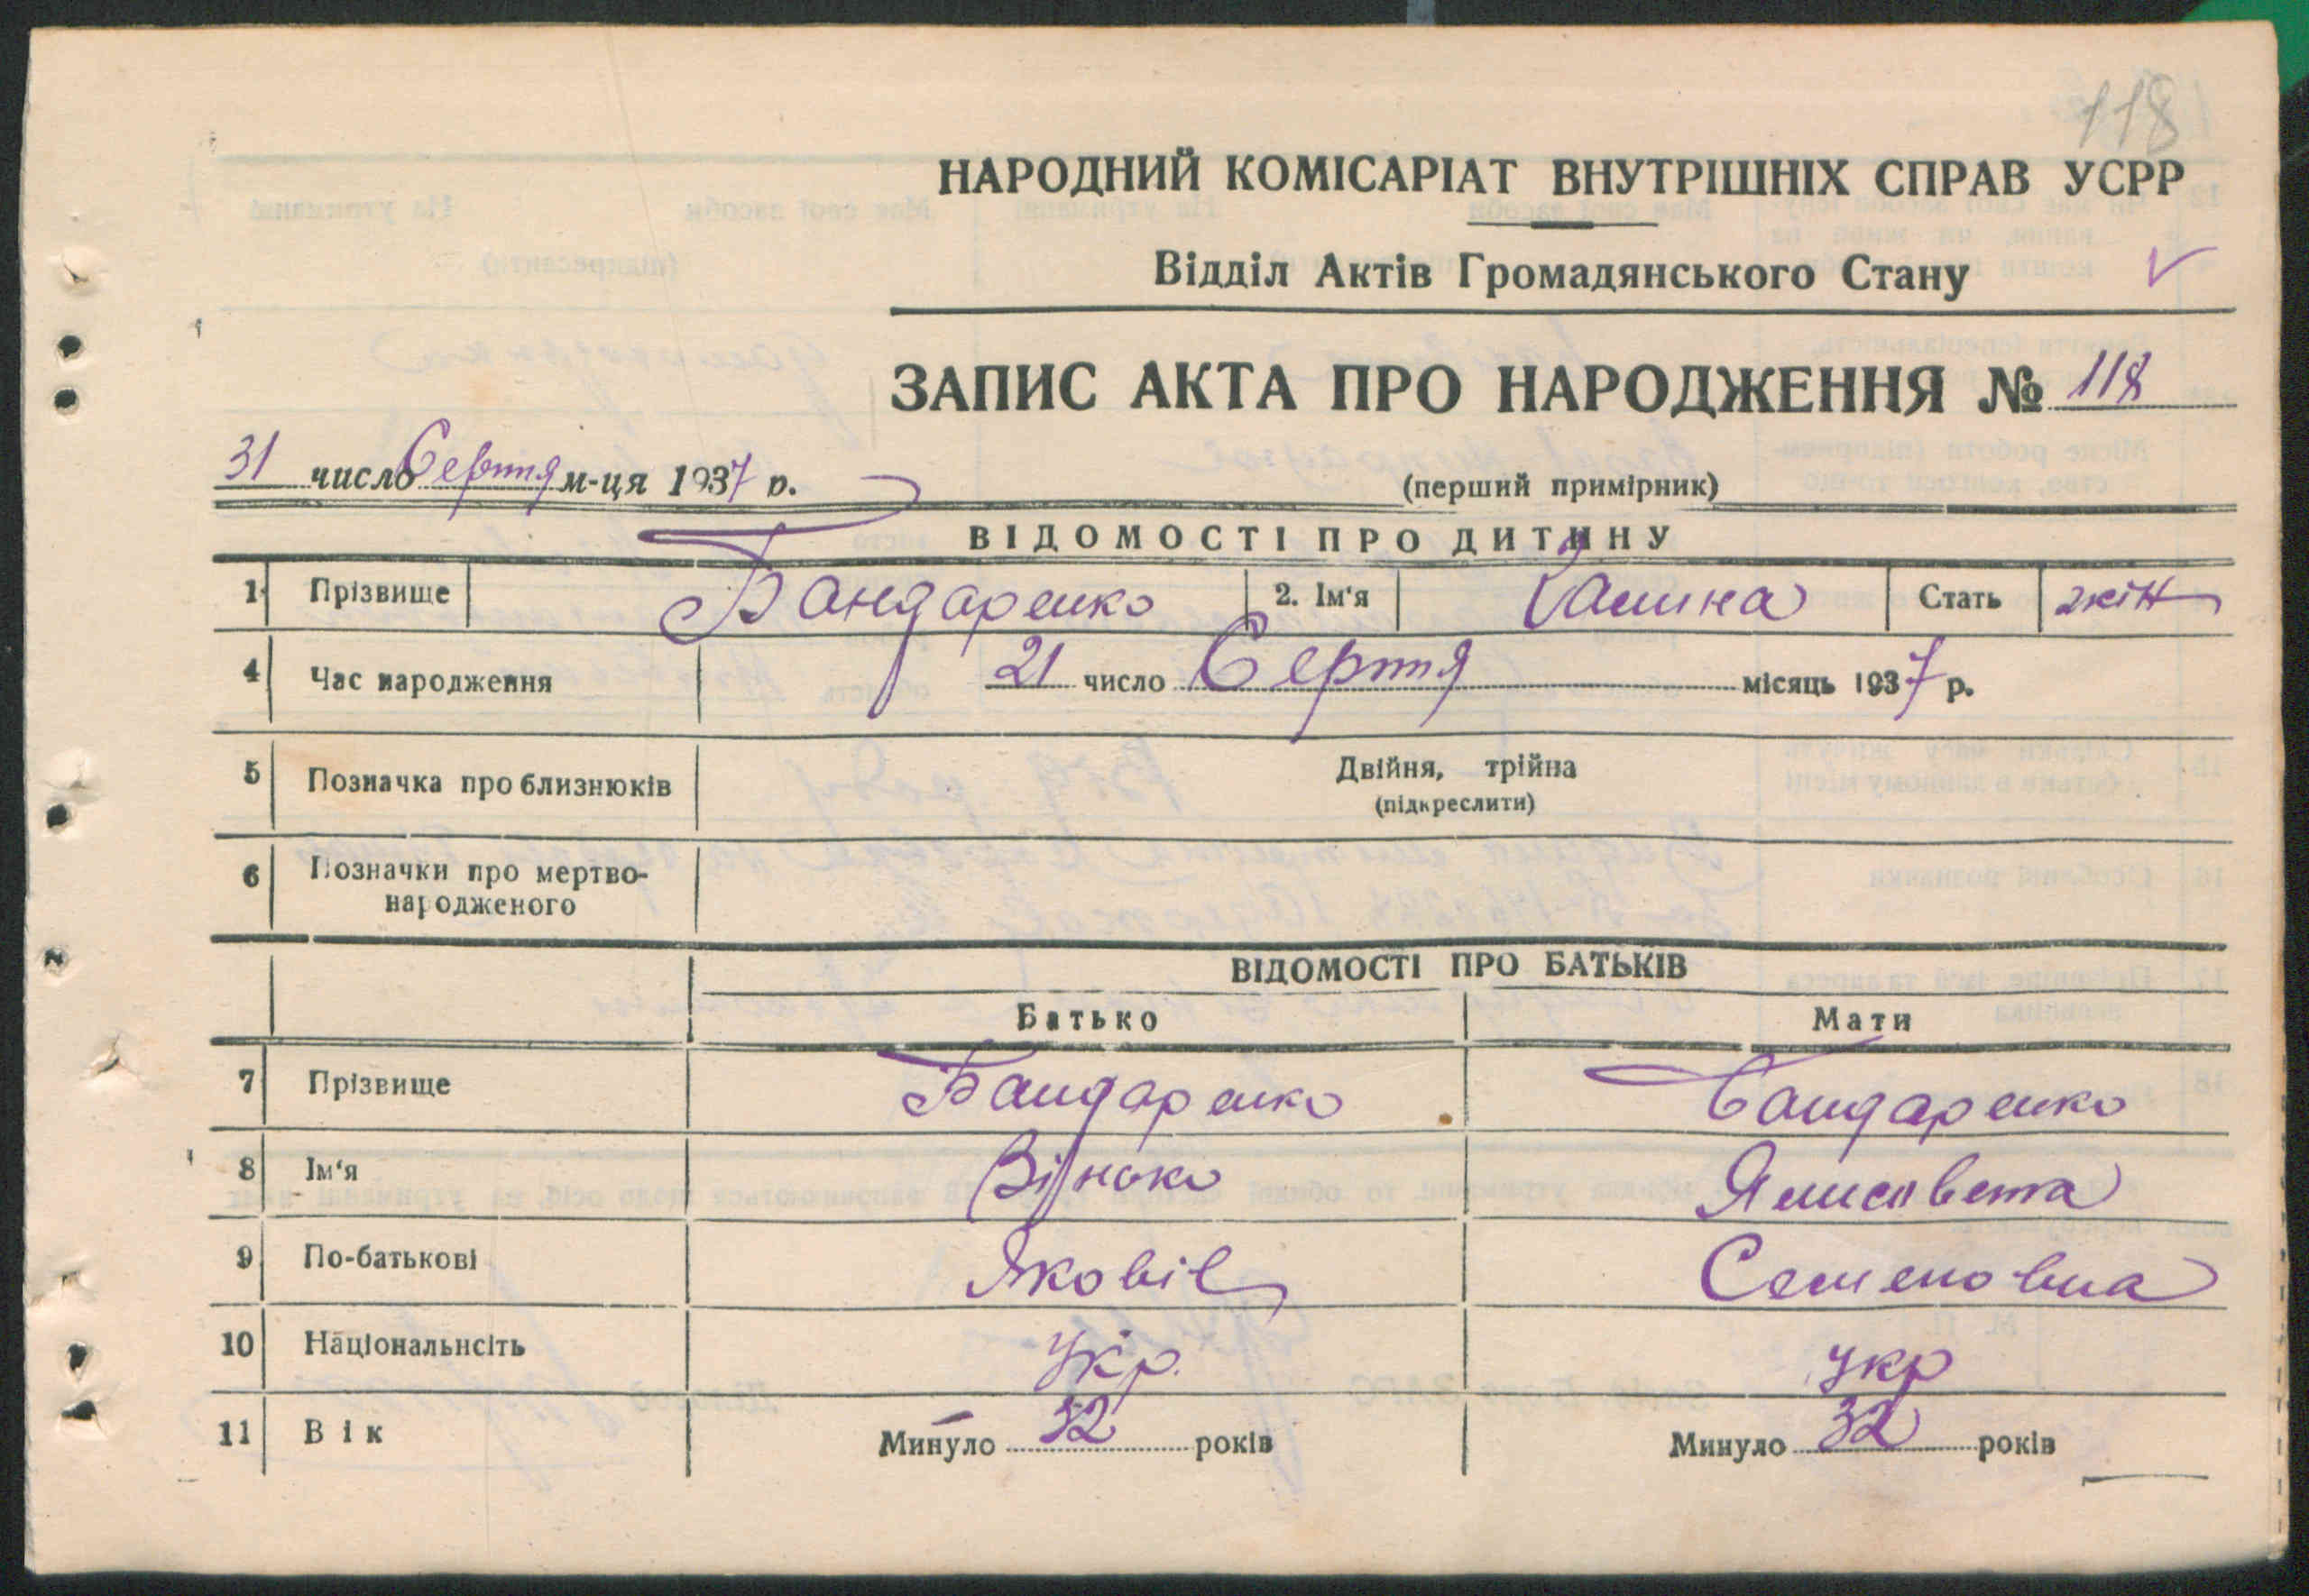 118
НАРОДНИЙ КОМІСАРІАТ ВНУТРІШНІХ СПРАВ УСРР
Відділ Актів Громадянського Стану
ЗАПИС АКТА ПРО НАРОДЖЕННЯ № 118
31 число Серпня м-ця 1937 р.
(перший примірник)
ВІДОМОСТІ ПРО ДИТИНУ
1 Прізвище Бандаренко 2. Ім'я Галина Стать жін
4 Час народження 21 число Серпня місяць 1937 р.
5 Позначка про близнюків Двійня, трійна
(підкреслити)
6 Позначки про мертво-
народженого
ВІДОМОСТІ ПРО БАТЬКІВ
Батько Мати
7 Прізвище Бандаренко Бандаренко
8 Ім'я Ялисовета
9 По-батькові Яковів Семеновна
10 Національнсіть Укр. укр
11 Вік Минуло 32 років Минуло 32 років